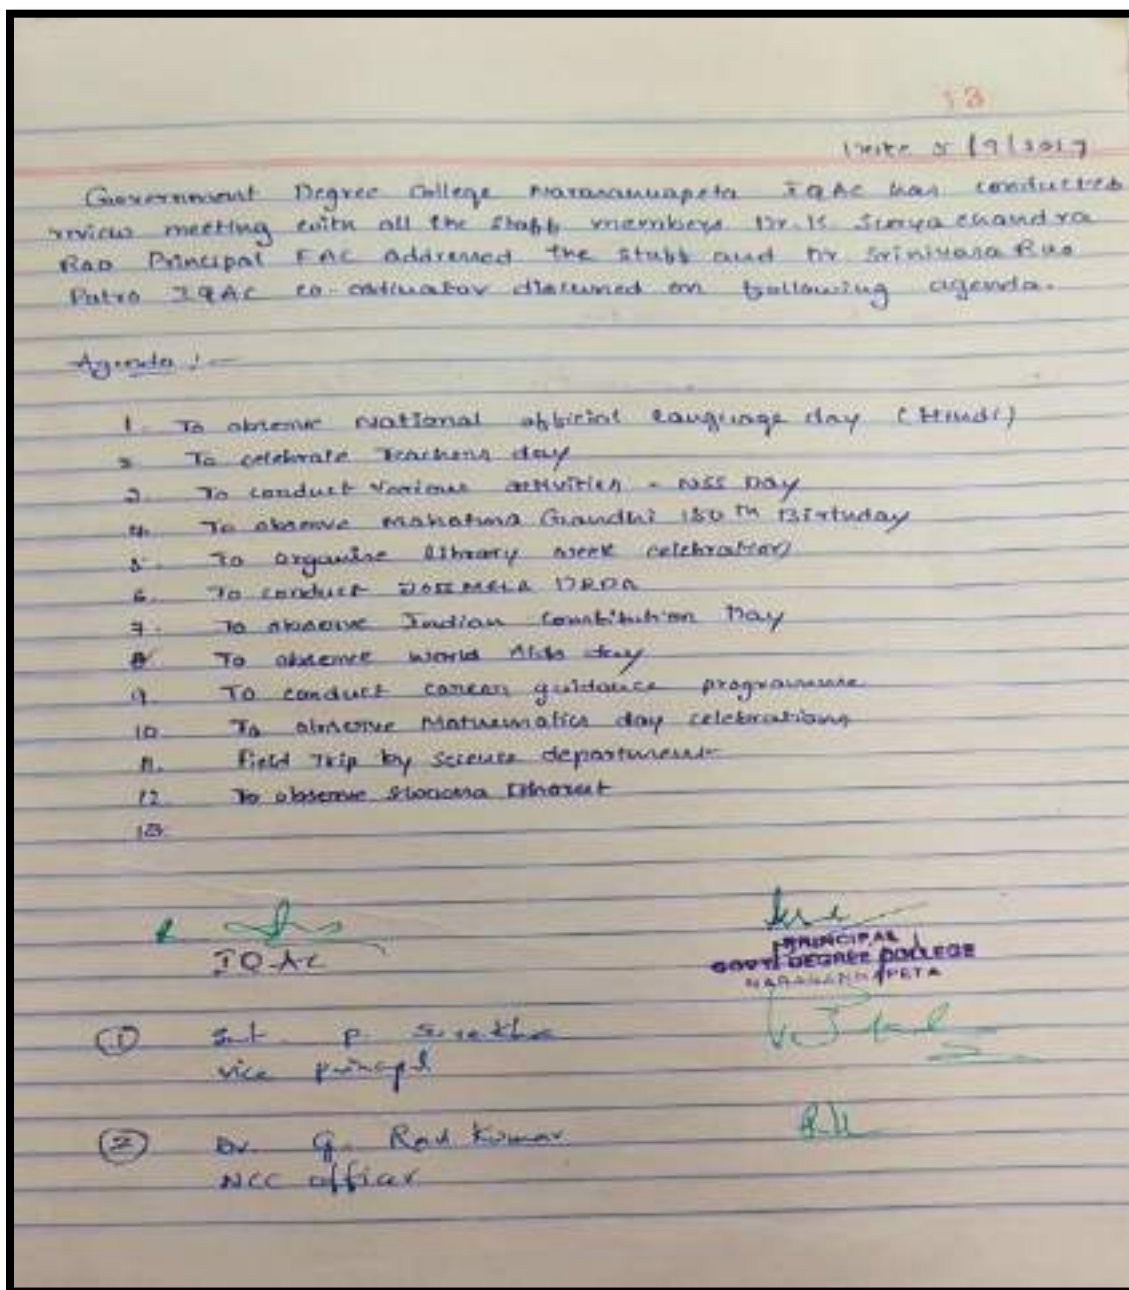 13
Date 5/9/2017
Government Degree College Narasannapeta IQAC has conducted
review meeting with all the staff members Dr. K. Surya chandra
Rao Principal FAC addressed the staff and Dr Srinivasa Rao
Patro IQAC co-ordinator discussed on following agenda.
Agenda :-
1. To observe National official language day (Hindi)
2. To celebrate Teachers day
3. To conduct various activities - NSS Day
4. To observe Mahatma Gandhi 150th Birthday
5. To organise library week celebration
6. To conduct JOB MELA DRDA
7. To observe Indian Constitution Day
8 To observe world Aids day
9. To conduct career guidance programme
10 To observe Mathematics day celebrations
11. field Trip by science department
12 To observe Bharat
13.
IQAC
PRINCIPAL
GOVT DEGREE COLLEGE
NARASANNAPETA
(1) Smt. P. Surekha
vice principal
(2) Dr. G. Ravi Kumar
NCC officer